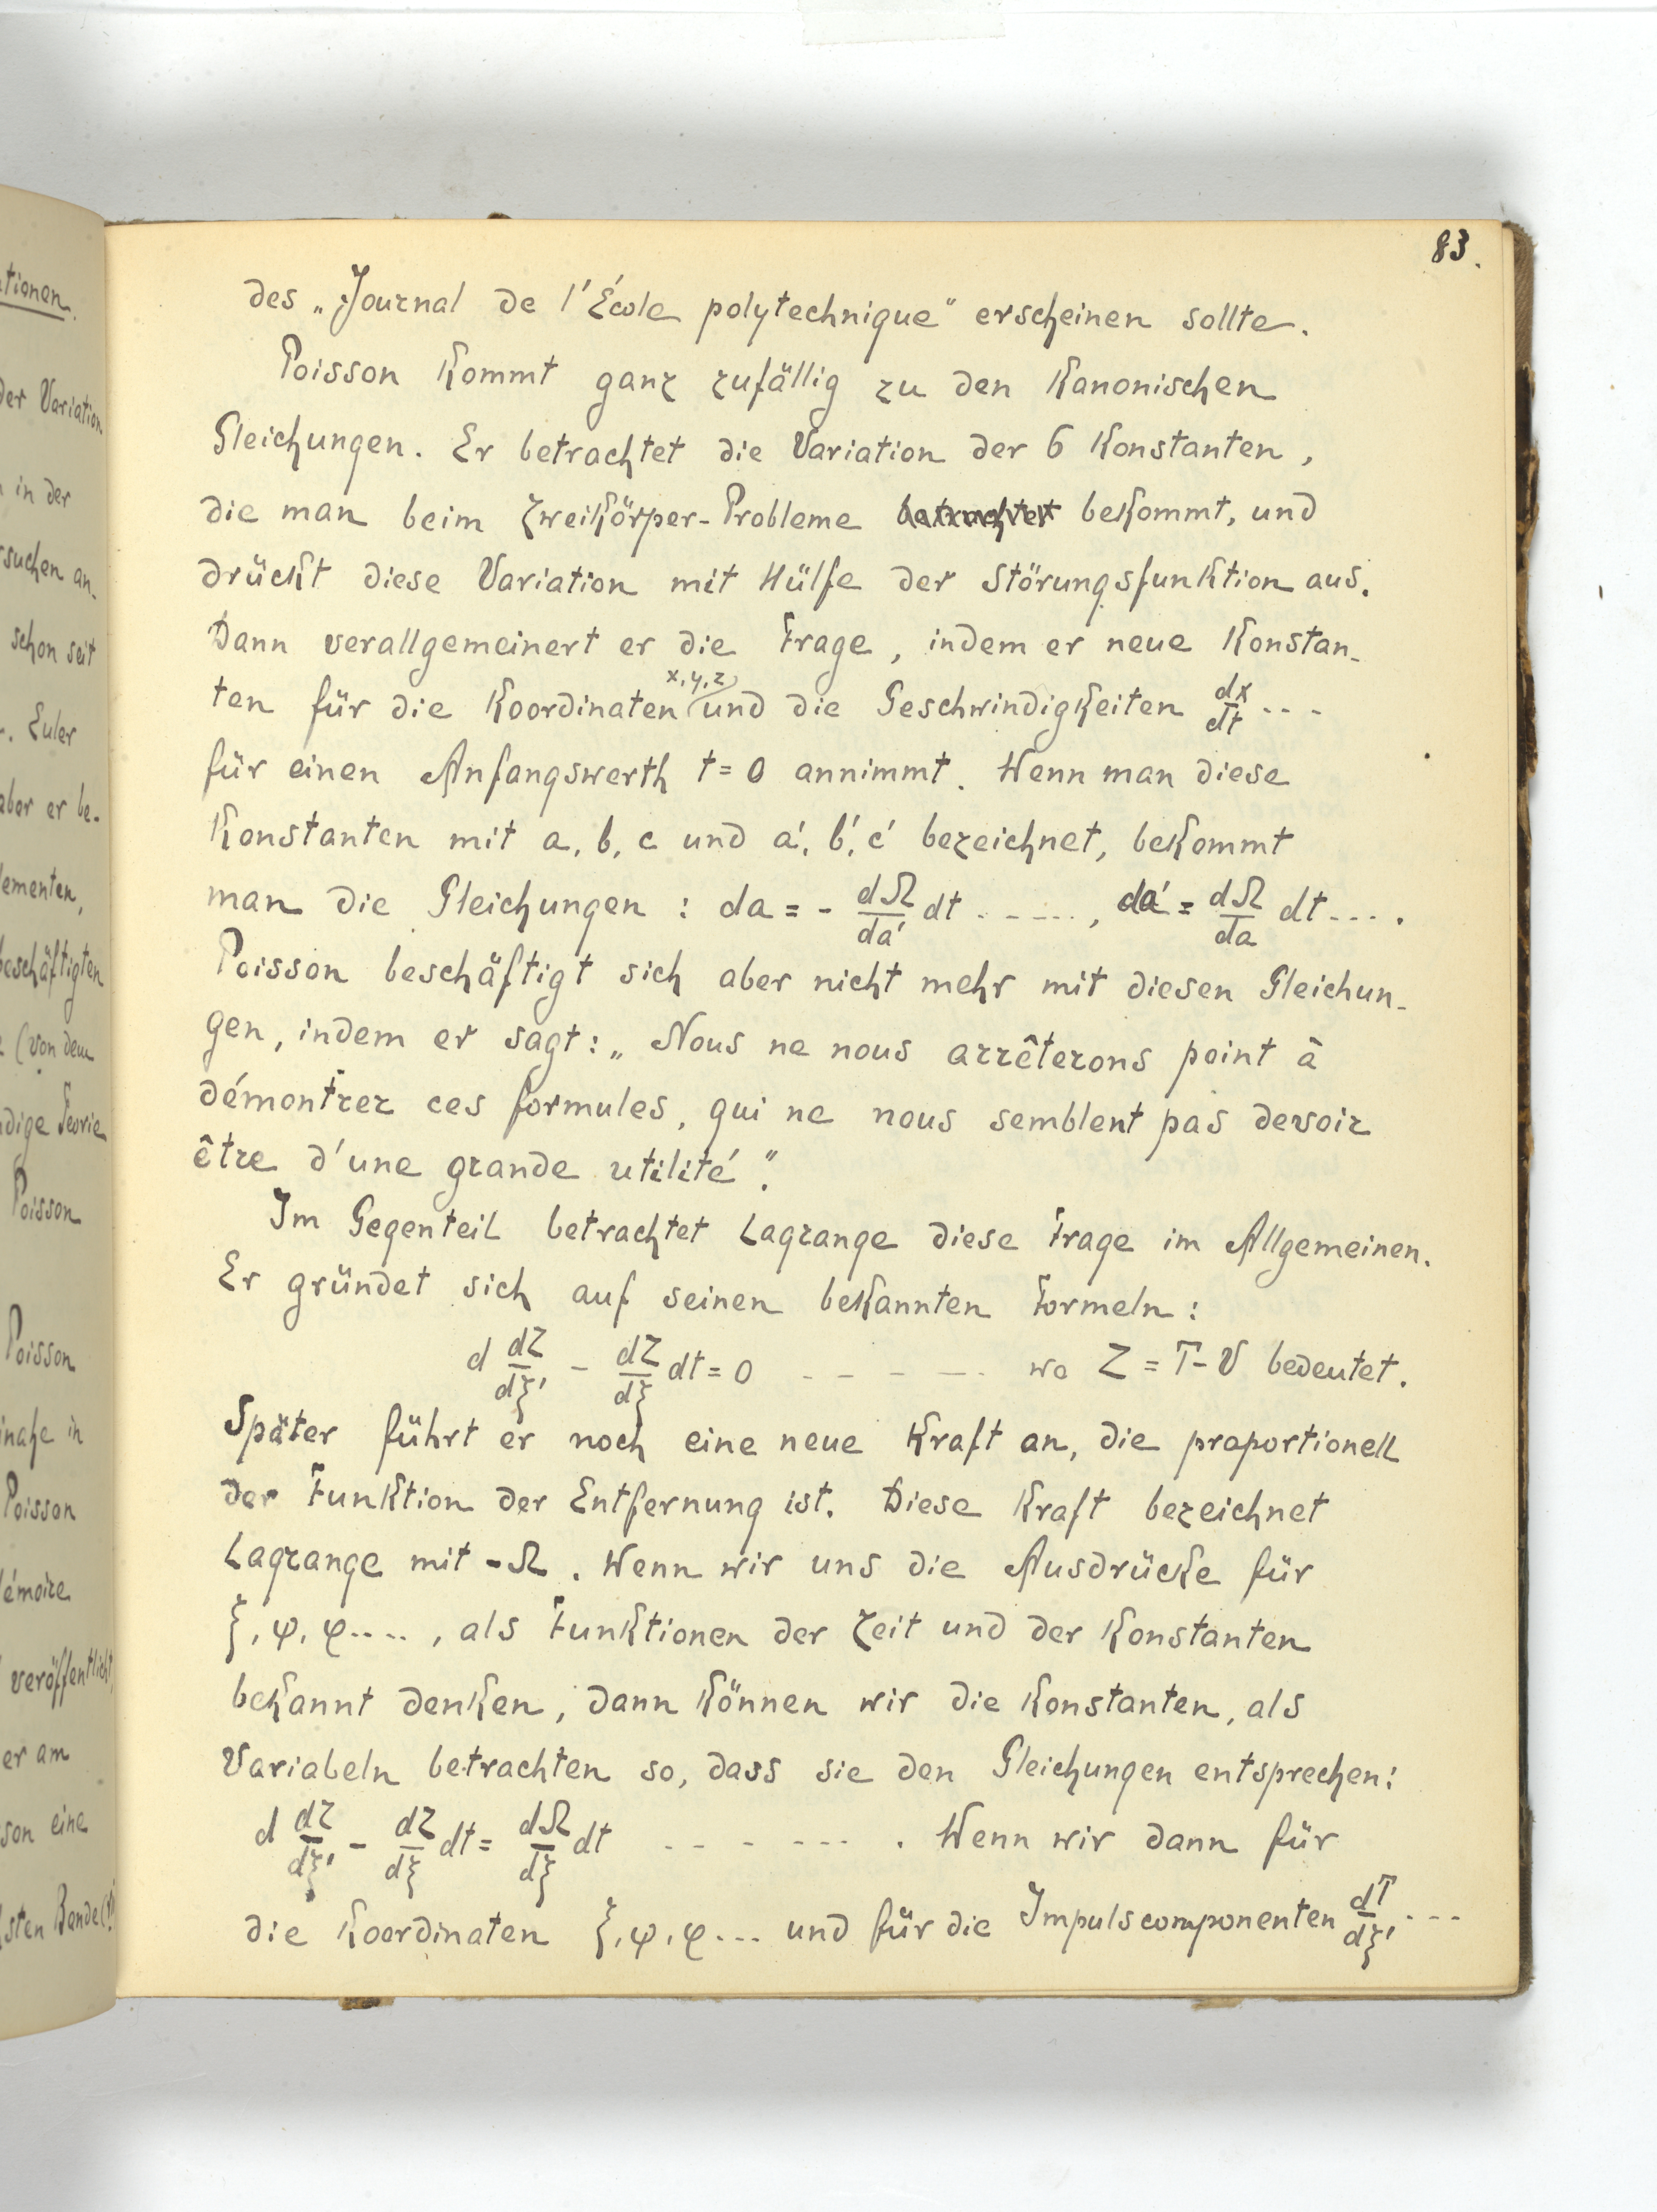 83.
des „Journal de l'École polytechnique" erscheinen sollte.
Poisson kommt ganz zufällig zu den kanonischen
Gleichungen. Er betrachtet die Variation der 6 Konstanten,
die man beim Zweikörper-Probleme betrachtet bekommt, und
drückt diese Variation mit Hülfe der Störungsfunktion aus.
Dann verallgemeinert er die Frage, indem er neue Konstan-
ten für die Koordinaten x, y, z und die Geschwindigkeiten dx/dt ...
für einen Anfangswerth t = 0 annimmt. Wenn man diese
Konstanten mit a, b, c und a', b', c' bezeichnet, bekommt
man die Gleichungen : da = - dΩ/da' dt ......, da' = dΩ/da dt ....
Poisson beschäftigt sich aber nicht mehr mit diesen Gleichun-
gen, indem er sagt: „Nous ne nous arrêterons point à
démontrer ces formules, qui ne nous semblent pas devoir
être d'une grande utilité".
Im Gegenteil betrachtet Lagrange diese Frage im Allgemeinen.
Er gründet sich auf seinen bekannten Formeln :
d dZ/dξ' - dZ/dξ dt = 0 - - - - - wo Z = T - V bedeutet.
Später führt er noch eine neue Kraft an, die proportionell
der Funktion der Entfernung ist. Diese Kraft bezeichnet
Lagrange mit -Ω. Wenn wir uns die Ausdrücke für
ξ, ψ, φ ...., als Funktionen der Zeit und der Konstanten
bekannt denken, dann können wir die Konstanten, als
Variabeln betrachten so, dass sie den Gleichungen entsprechen:
d dZ/dξ' - dZ/dξ dt = dΩ/dξ dt - - - - - - . Wenn wir dann für
die Koordinaten ξ, ψ, φ ... und für die Impulscomponenten dT/dξ' ...
ationen.
der Variation
in der
suchen an-
schon seit
Euler
aber er be-
lementen,
beschäftigten
(von dem
dige Teorie
Poisson
Poisson
inahe in
Poisson
émoire
veröffentlicht,
er am
son eine
sten Bande